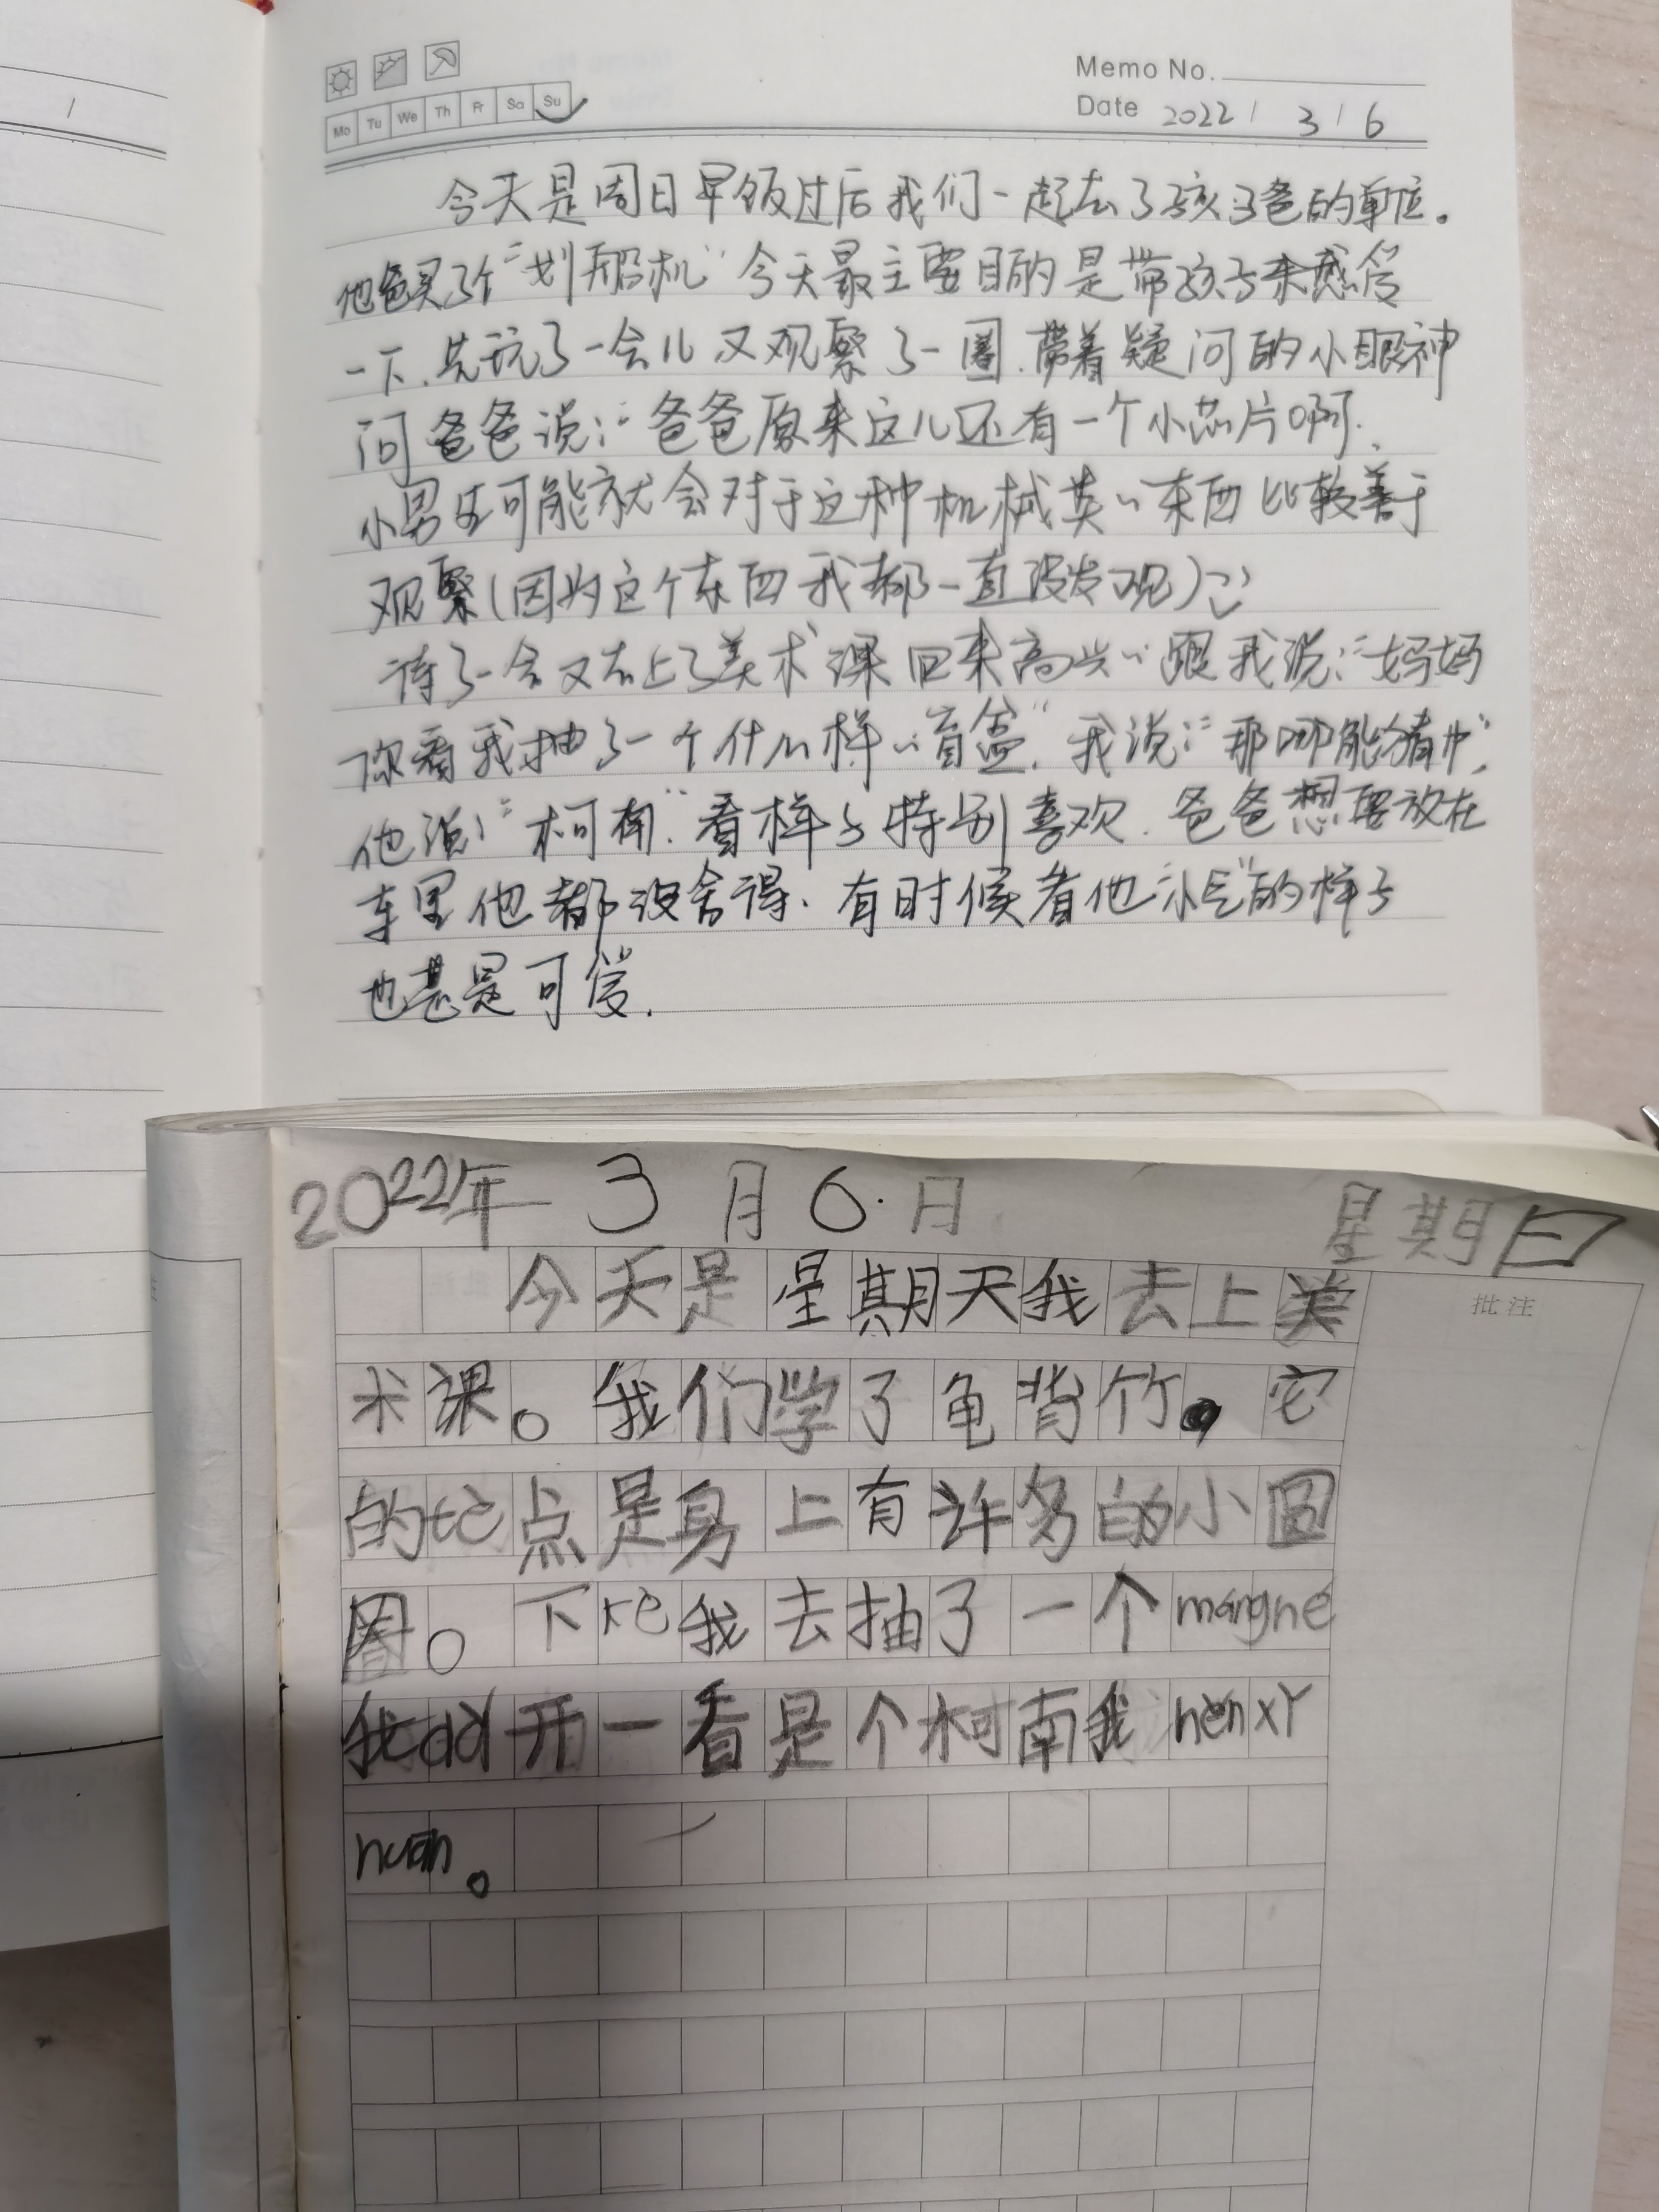 Memo No.
Mo Tu We Th Fr Sa Su
Date 2022 / 3 / 6
今天是周日早饭过后我们一起去了孩子爸的单位。
他爸买了个"划船机"今天最主要目的是带孩子来感受
一下.先玩了一会儿又观察了一圈.带着疑问的小眼神
问爸爸说:"爸爸原来这儿还有一个小芯片啊.
小男生可能就会对于这种机械类的东西比较善于
观察(因为这个东西我都一直没发现)
待了一会又去上了美术课回来高兴的跟我说:"妈妈
你看我抽了一个什么样的盲盒".我说:"那哪能猜中".
他说:"柯南".看样子特别喜欢.爸爸想要放在
车里他都没舍得.有时候看他"小气"的样子
也甚是可爱.
2022年 3 月 6.日 星期日
今天是星期天我去上美
批注
术课。我们学了龟背竹。它
的tè点是身上有许多的小圆
圈。下kè我去抽了一个manghe
我dǎ开一看是个柯南我hěnxǐ
huan。